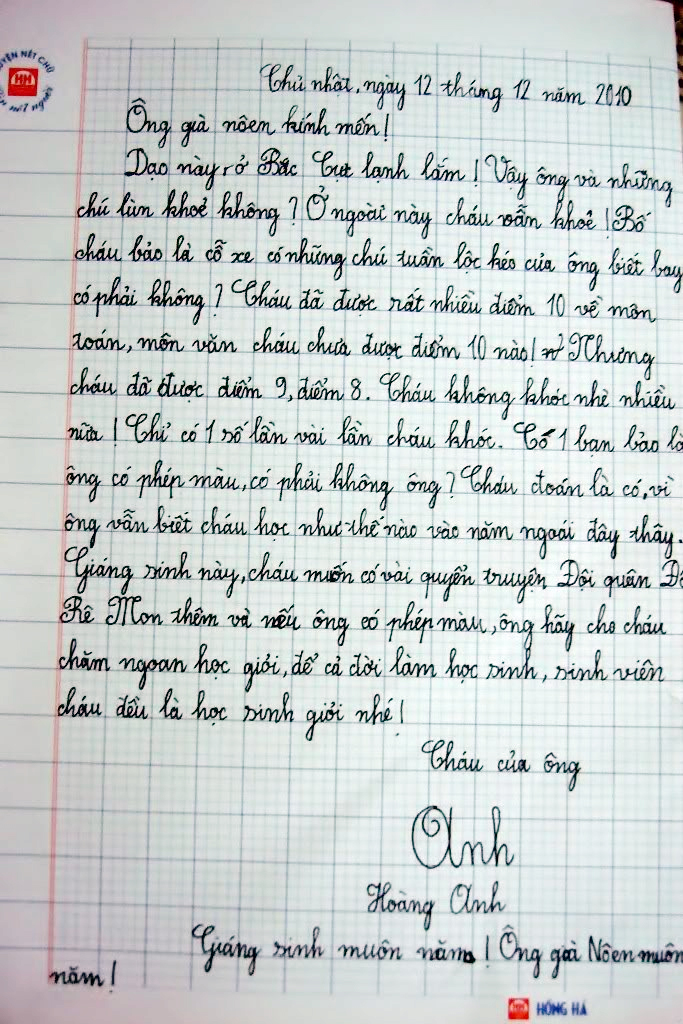 LUYỆN NÉT CHỮ
HH
rèn nết người
Chủ nhật, ngày 12 tháng 12 năm 2010
Ông già nôen kính mến!
Dạo này, ở Bắc Cực lạnh lắm! Vậy ông và những
chú lùn khoẻ không? Ở ngoài này cháu vẫn khoẻ! Bố
cháu bảo là cỗ xe có những chú tuần lộc kéo của ông biết bay
có phải không? Cháu đã được rất nhiều điểm 10 về môn
toán, môn văn cháu chưa được điểm 10 nào! Nhưng
cháu đã được điểm 9, điểm 8. Cháu không khóc nhè nhiều
nữa! Chỉ có 1 số lần vài lần cháu khóc. Có 1 bạn bảo là
ông có phép màu, có phải không ông? Cháu đoán là có, vì
ông vẫn biết cháu học như thế nào vào năm ngoái đây thây.
Giáng sinh này, cháu muốn có vài quyển truyện Đội quân Đô
Rê Mon thêm và nếu ông có phép màu, ông hãy cho cháu
chăm ngoan học giỏi, để cả đời làm học sinh, sinh viên
cháu đều là học sinh giỏi nhé!
Cháu của ông
Anh
Hoàng Anh
Giáng sinh muôn năm! Ông già Nôen muôn
năm!
HH HỒNG HÀ